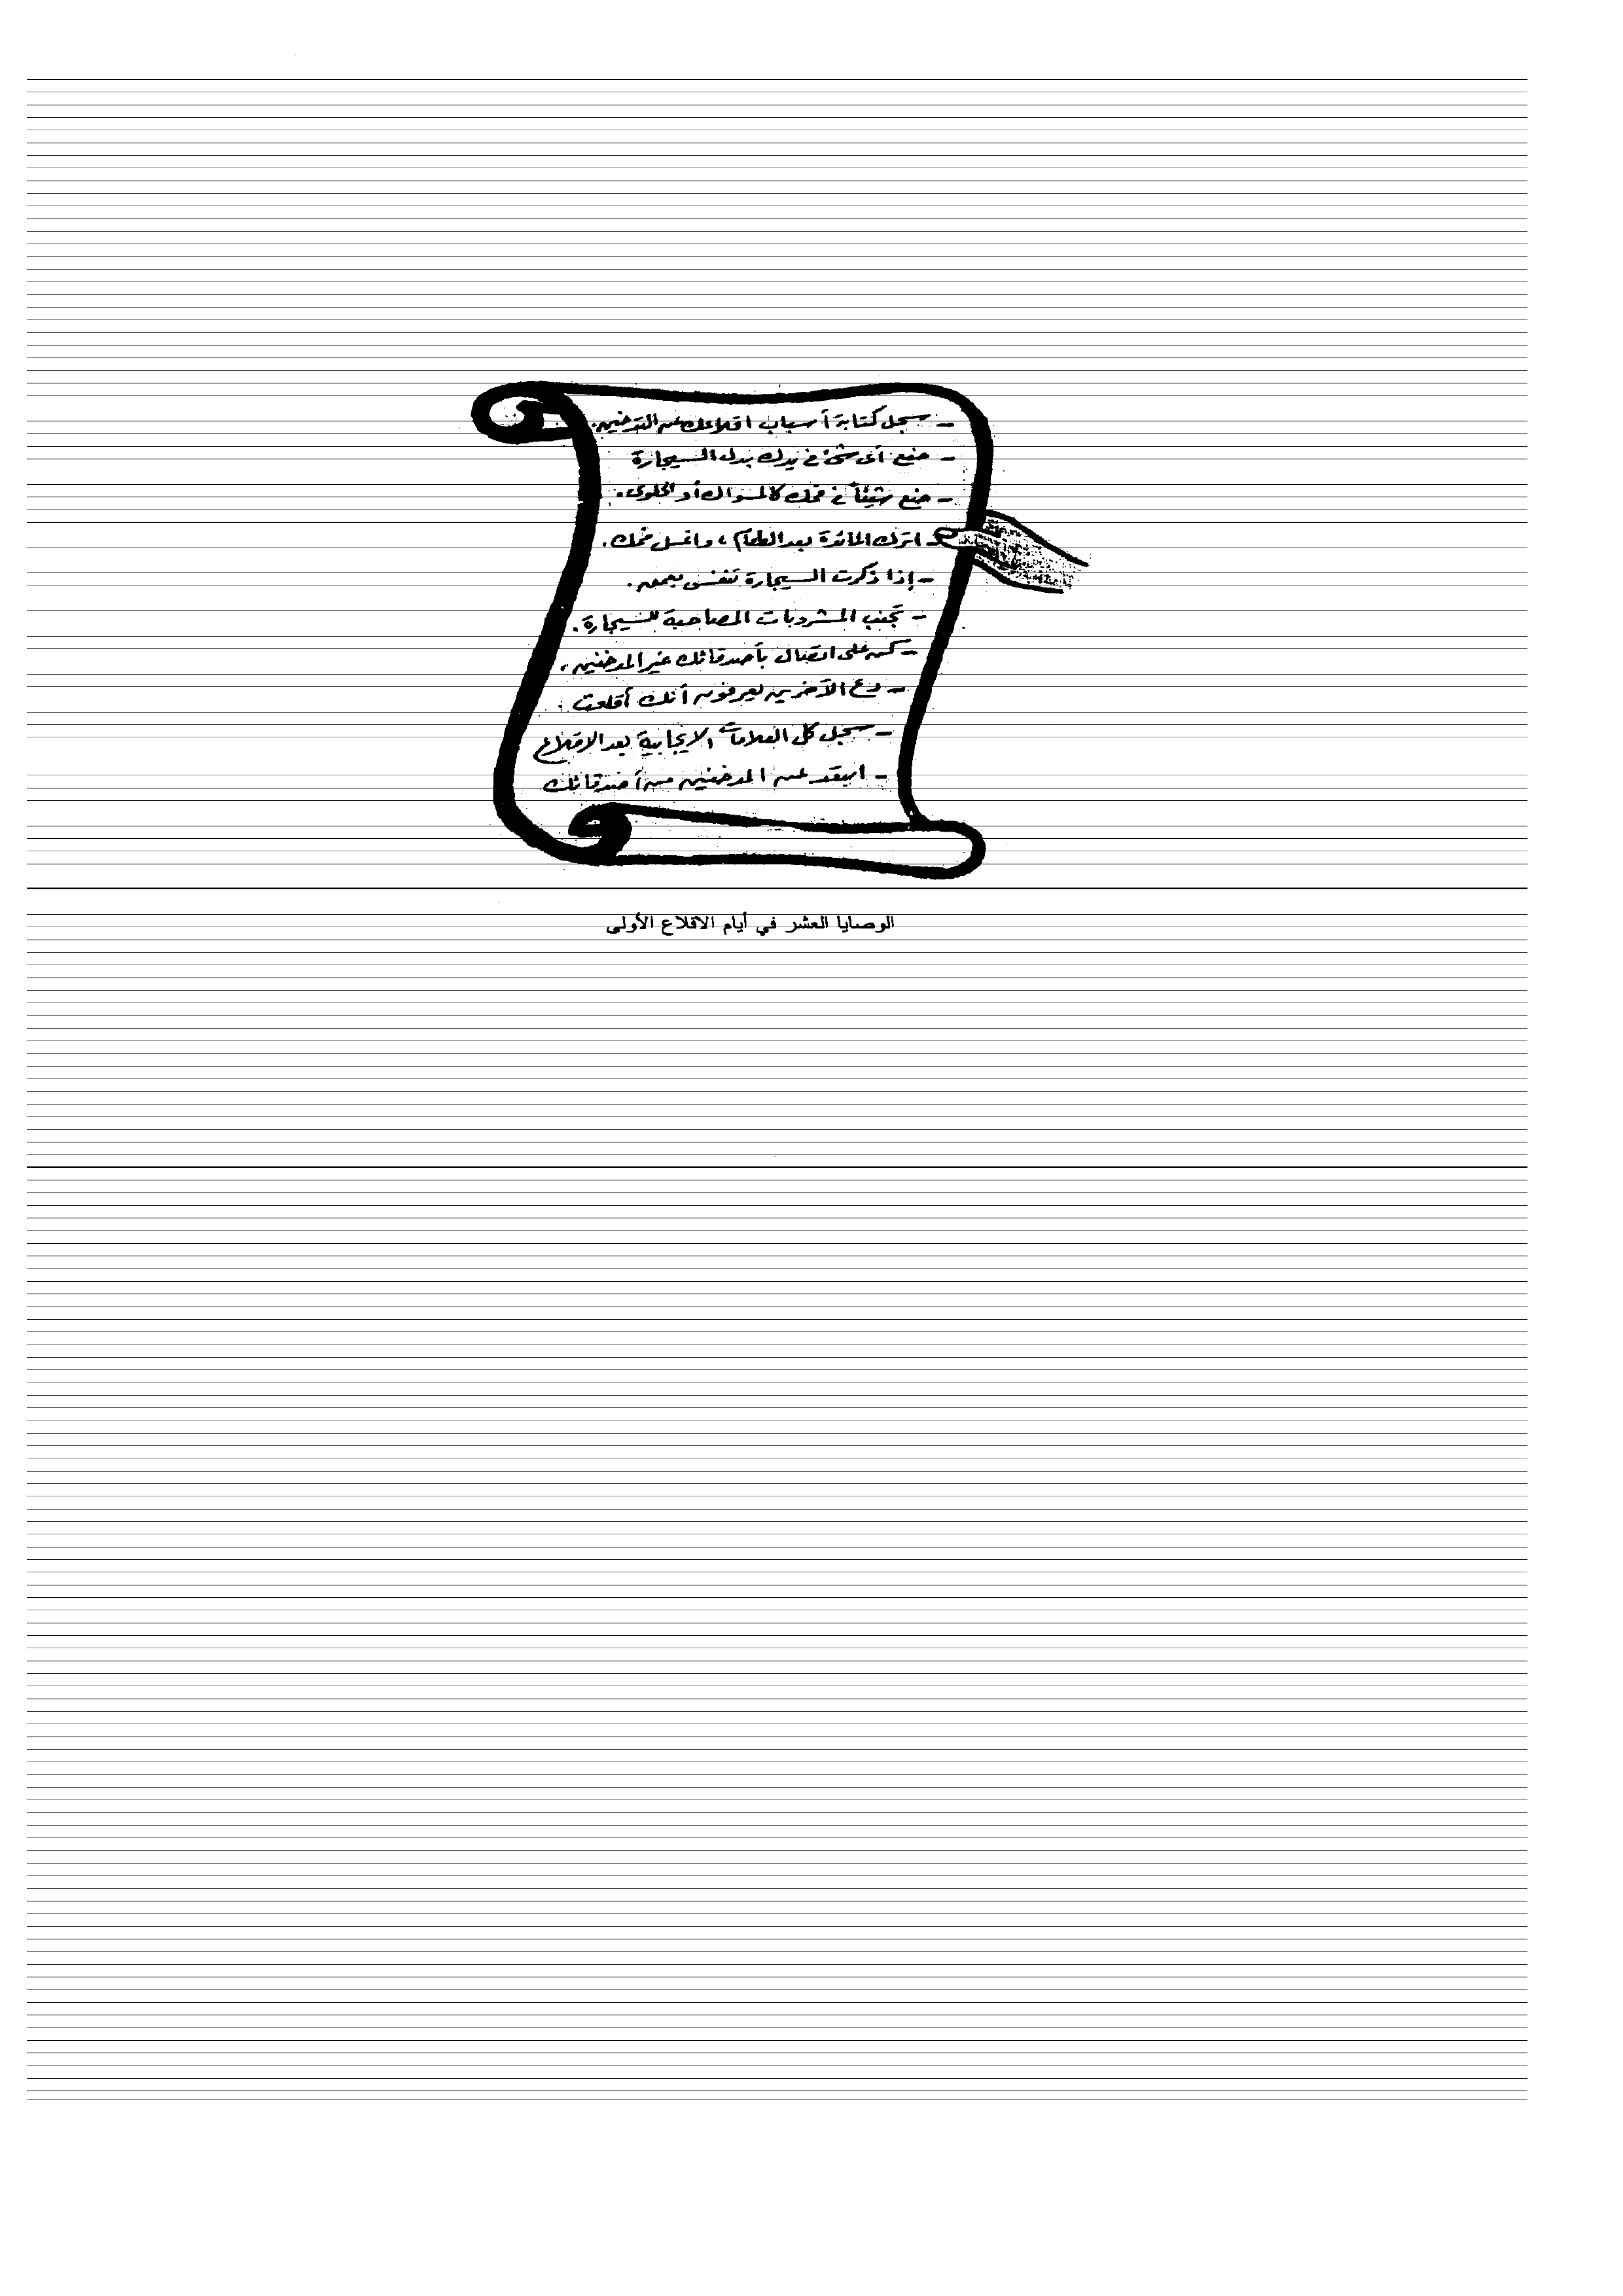 - سجل كتابة أسباب اقلاعك عن التدخين.
- ضع أي شئ في يدك بدل السيجارة
- ضع شيئاً في فمك كالمسواك أو الحلوى.
- اترك المائدة بعد الطعام، واغسل فمك.
- إذا ذكرت السيجارة تنفس بعمق.
- تجنب المشروبات المصاحبة للسيجارة.
- كن على اتصال بأصدقائك غير المدخنين.
- دع الآخرين يعرفون أنك أقلعت.
- سجل كل العلامات الايجابية بعد الاقلاع
- ابتعد عن المدخنين من أصدقائك
الوصايا العشر في أيام الاقلاع الأولى